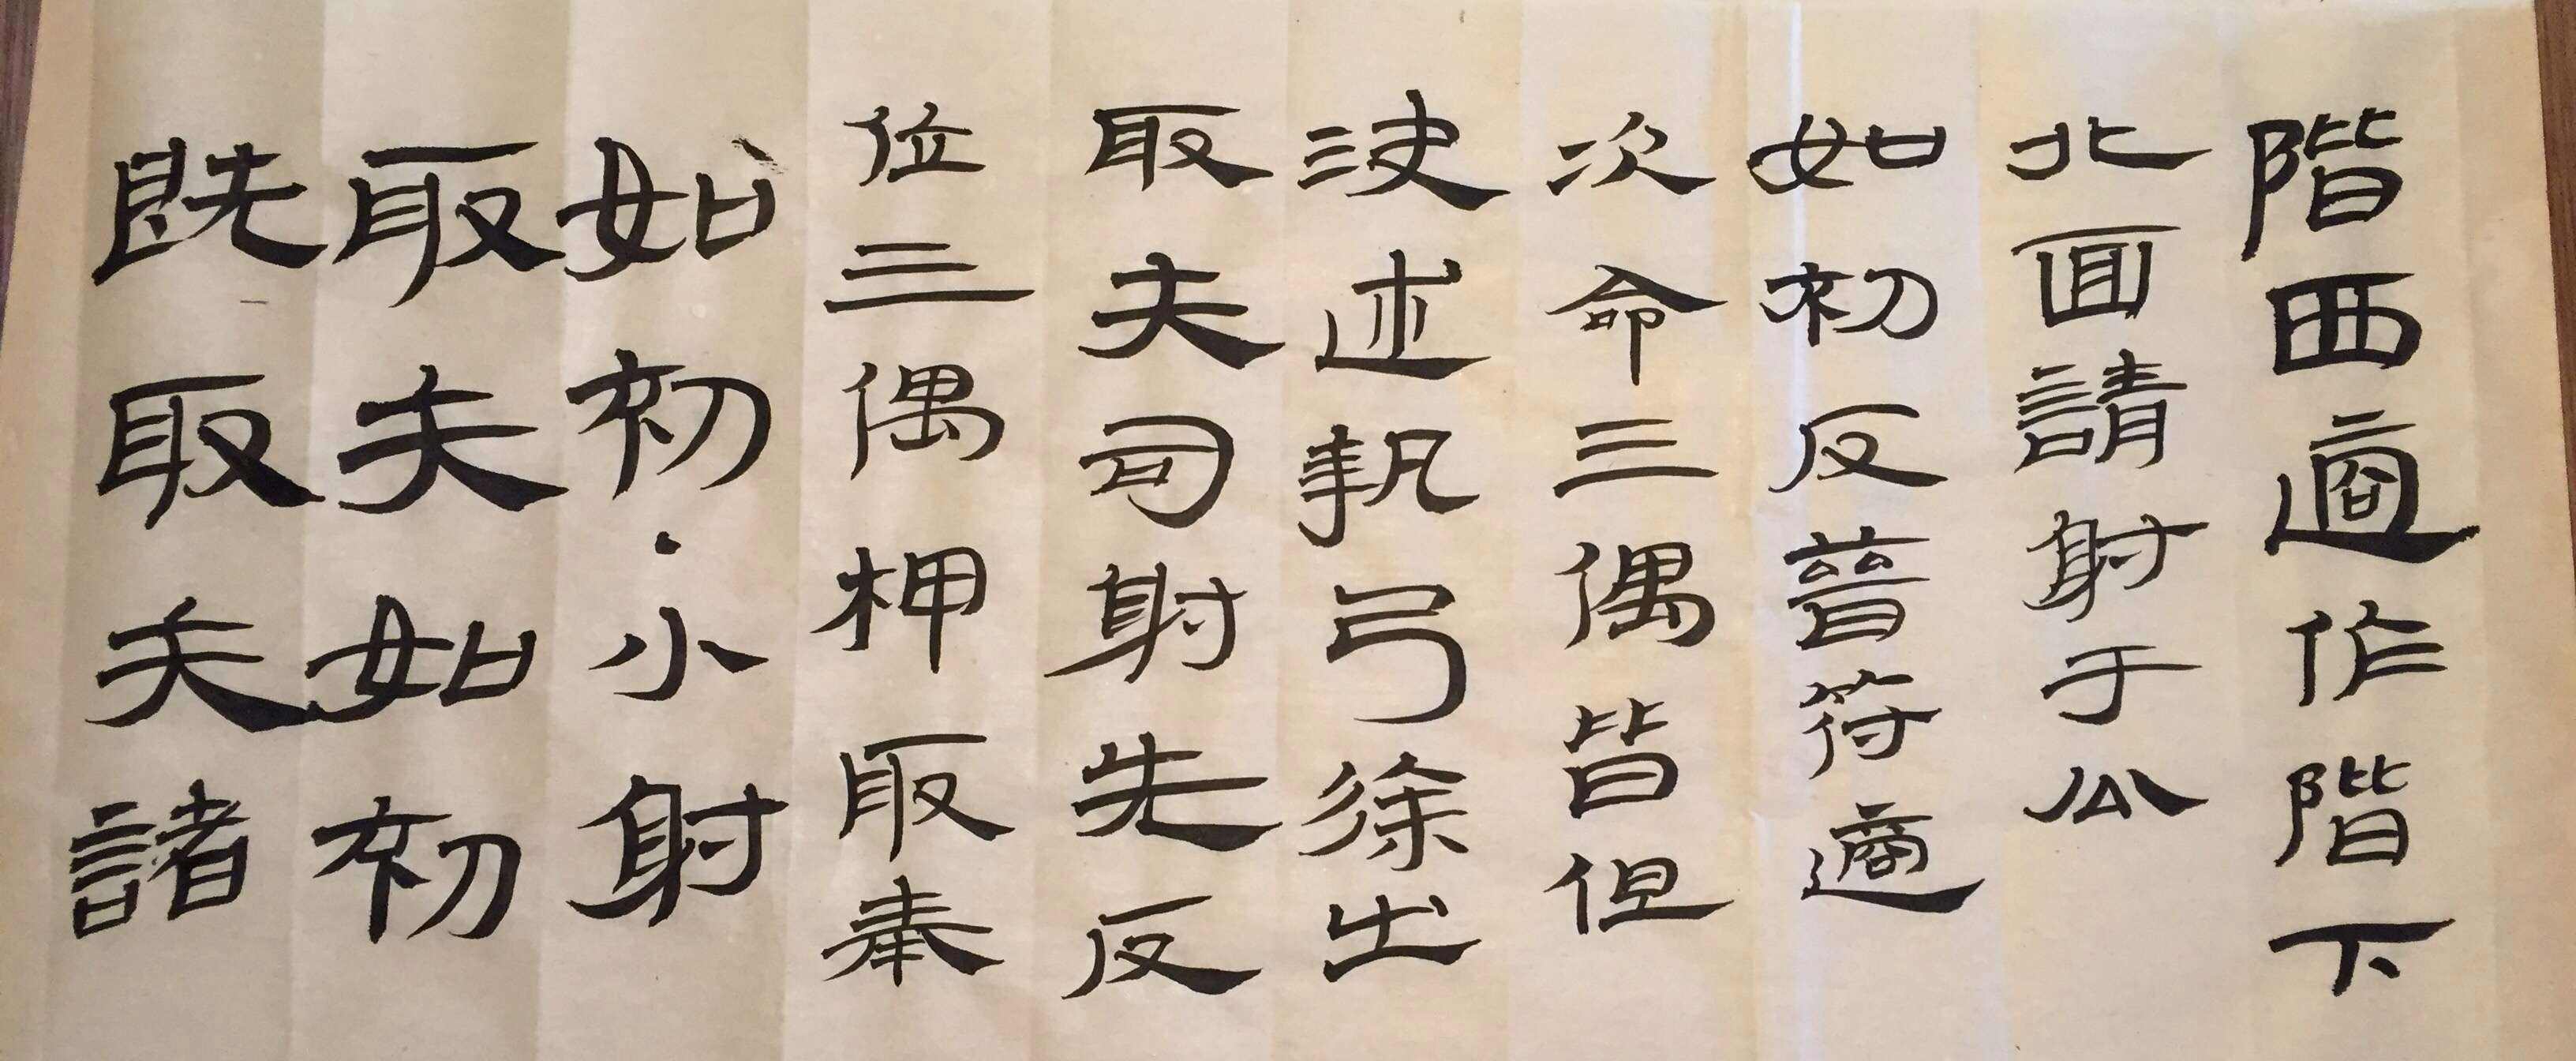 階西適作階下
北面請射于公
如初反晉符適
次命三偶皆但
決述執弓徐出
取夫司射先反
位三偶柙取奉
如初·小射
取夫如初
既取夫諸